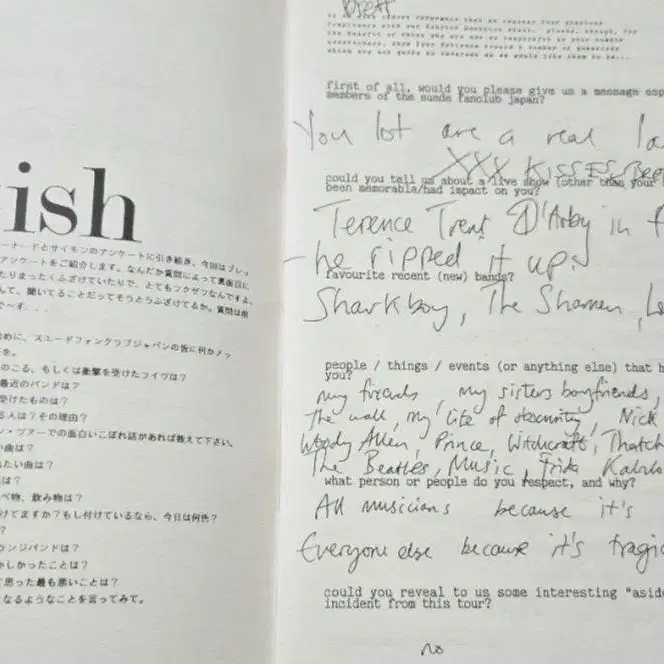 ish
ード・とサイモンのアンケートに引き続き、今回はブレッ
アンケートをご紹介します。なんだか質問によって裏面目に
たりまったくふざけていたりで、とてもフクザツなんですよ。
して、聞いてることだってそうとうふざけてるか。質問は前
で〜す．．．
めに、スエードファンクラブジャパンの皆に何かメッ
を。
のこる、もしくは衝撃を受けたライヴは？
最近のバンドは？
受けたものは？
る人は？その理由？
ン・ツアーでの面白いこぼれ話があれば教えて下さい。
い曲は？
たい曲は？
は？
べ物、飲み物は？
けてますか？もし付けているなら、今日は何色？
？
ランジバンドは？
かしかったことは？
て思った最も悪いことは？
なるようなことを言ってみて。
Brett
first of all, would you please give us a message esp
members of the suede fanclub japan?
You lot are a real
XXX KISSES Bre
could you tell us about a live show (other than your
been memorable/had impact on you?
Terence Trent D'Arby in
- he ripped it up.
favourite recent (new) bands?
Sharkboy, The Shamen,
people / things / events (or anything else) that h
you?
my friends, my sisters boyfriends,
The wall, my life of obscurity, Nick
Woody Allen, Prince, Witchcraft, Thatch
The Beatles, Music, Frida Kahlo
what person or people do you respect, and why?
All musicians because it's
Everyone else because it's tragic
could you reveal to us some interesting "aside
incident from this tour?
no